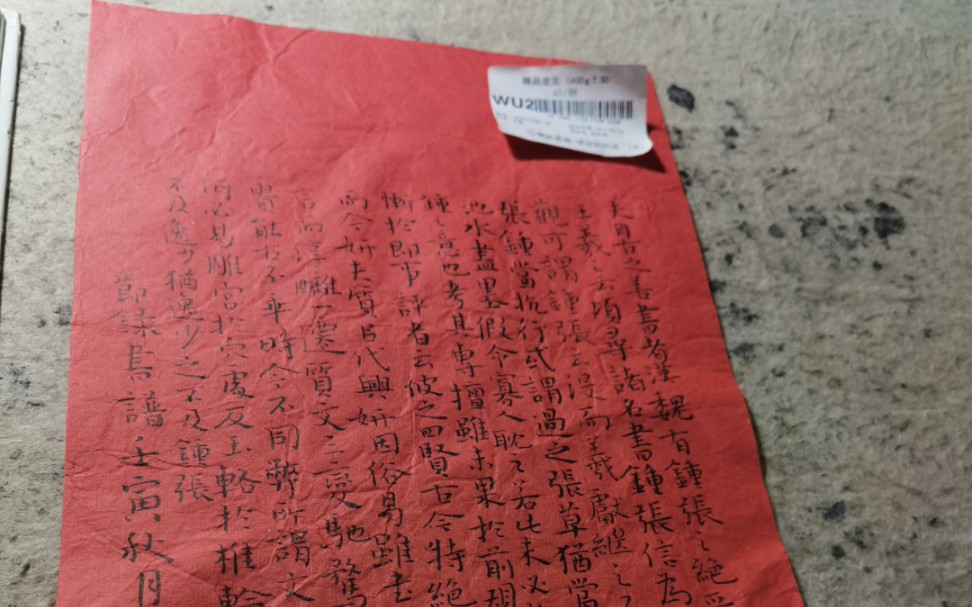 夫自古之善書者漢魏有鍾張之絕
王羲之云頃尋諸名書鍾張信為
觀可謂鍾張云沒而羲獻繼之
張鍾當抗行或謂過之張草猶當
池水盡墨假令寡人耽之若此未必
鍾之意也考其專擅雖未果於前規
慚於即事評者云彼之四賢古今特絕
而今妍夫質以代興妍因俗易雖書
言而淳醨一遷質文三變馳騖
貴能古不乖時今不同弊所謂文
何必易雕宮於穴處反玉輅於椎輪
不及逸少猶逸少之不及鍾張
節錄書譜壬寅秋月
WU2